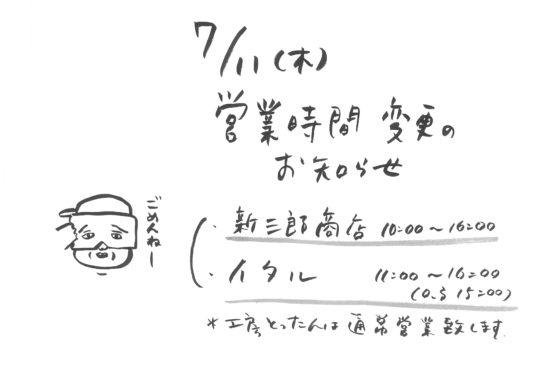 7/11(木)
営業時間 変更の
お知らせ
ごめんねー
・新三郎商店 10:00〜16:00
・イタル 11:00〜16:00
(o.s 15:00)
*工房とったんは通常営業致します.